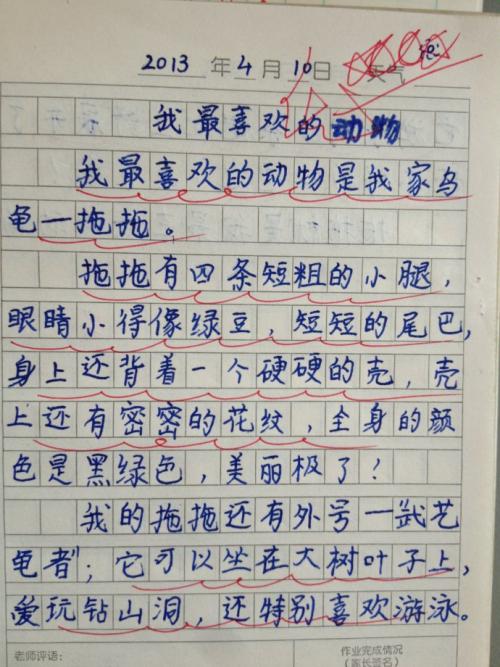 2013年4月10日 天气
我最喜欢的动物
我最喜欢的动物是我家乌
龟一拖拖。
拖拖有四条短粗的小腿,
眼睛小得像绿豆,短短的尾巴,
身上还背着一个硬硬的壳,壳
上还有密密的花纹,全身的颜
色是黑绿色,美丽极了?
我的拖拖还有外号一"武艺
龟者";它可以坐在大树叶子上,
爱玩钻山洞,还特别喜欢游泳。
老师评语: 作业完成情况
(家长签名)